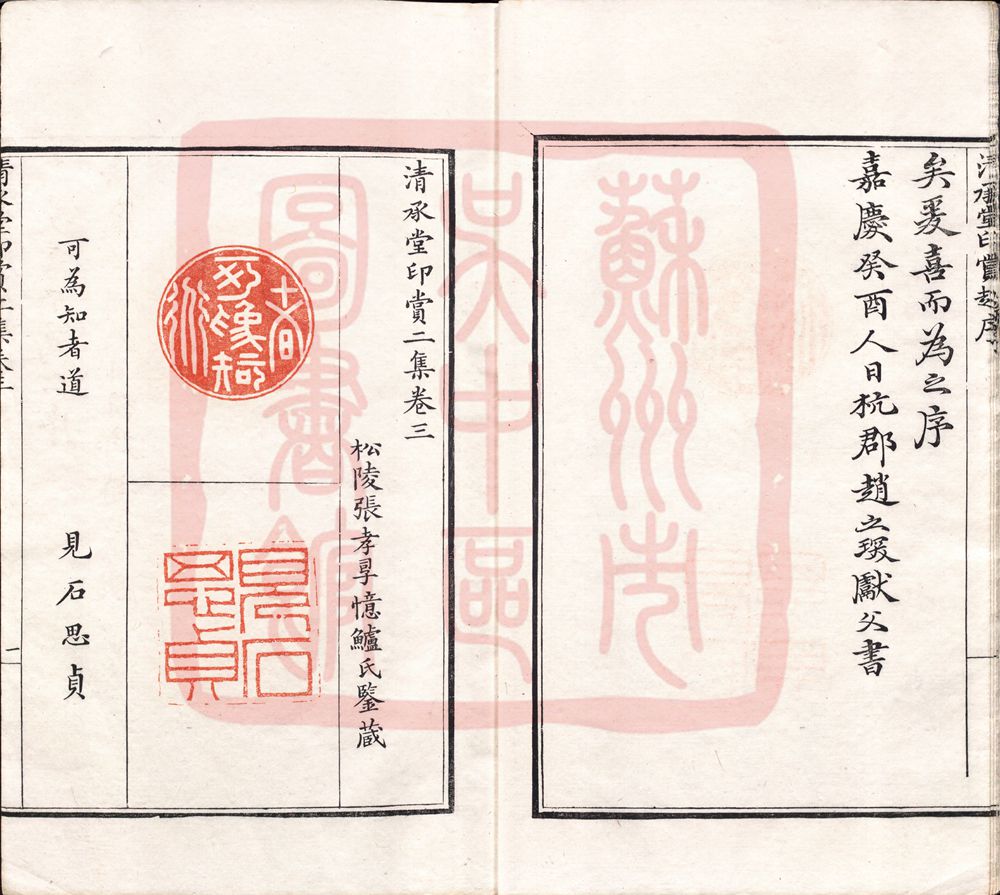 清承堂印賞趙序
矣爰喜而為之序
嘉慶癸酉人日杭郡趙之琛獻父書
蘇州市
吳中區
圖書館
清承堂印賞二集卷三
松陵張孝嗣憶鱸氏鑒藏
可為知者道
見石思貞
可為知者道
見石思貞
清承堂印賞二集卷三
一